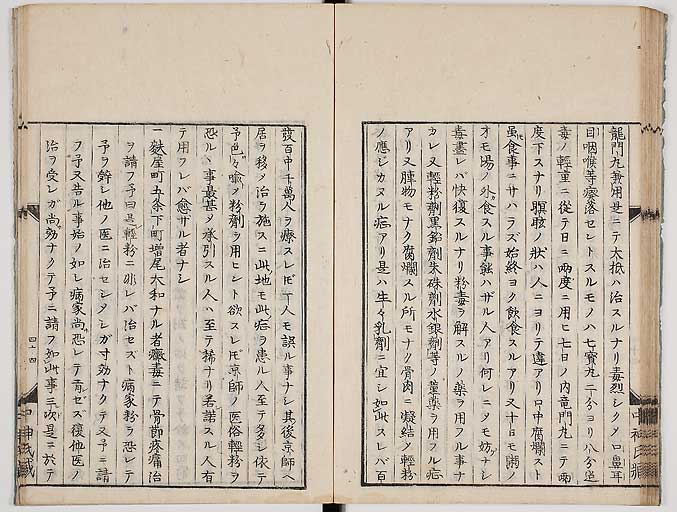 龍門丸兼用是ニテ大抵ハ治スルナリ毒烈シクメ口鼻耳
目咽喉等瘡落セントスルモノハ七寳丸二十分ヨリ八分迠
毒ノ輕重ニ從テ日ニ兩度ニ用ヒ七日ノ内竜門丸ニテ兩
度下スナリ瞑眩ノ狀ハ人ニヨリテ違アリ口中腐爛スト
虽𪜈食事ニサハラズ始終ヨク飲食スルアリ又十日モ粥ノ
オモ湯ノ外食スル事能ハザル人アリ何レニメモ妨ナシ
毒盡レバ快復スルナリ粉毒ヲ解スルノ藥ヲ用フル事ナ
カレ又輕粉劑黒鉛劑朱硃劑水銀劑等ノ薰藥ヲ用フル后
アリ又膿物モナク腐爛スル所モナク骨肉ニ凝結ノ輕粉
ノ應ジカヌル症アリ是ハ生々乳劑ニ宜シ如此スレバ百
發百中千萬人ヲ療スレ𪜈一人モ誤ル事ナシ其後京師ヘ
居ヲ移メ治ヲ施スニ此地モ此症ヲ患ル人至テ多シ依テ
予色々喩メ粉劑ヲ用ヒント欲スレ𪜈京師ノ医俗輕粉ヲ
恐ルヽ事最甚メ承引スル人ハ至テ稀ナリ若諾スル人有
テ用フレバ愈ザル者ナシ
一麩屋町五条下町増尾大和ナル者黴毒ニテ骨節疼痛治
ヲ請フ予曰是輕粉ニ非レバ治セズト病家粉ヲ恐レテ
予ヲ辞シ他ノ医ニ治セシタレガ寸効ナクテ又予ニ請
フ予又告ル事始ノ如シ病家尚恐レテ肯ゼズ復他医ノ
治ヲ受シガ尚効ナクテ予ニ請フ如此事三次是ニ於テ
四十四